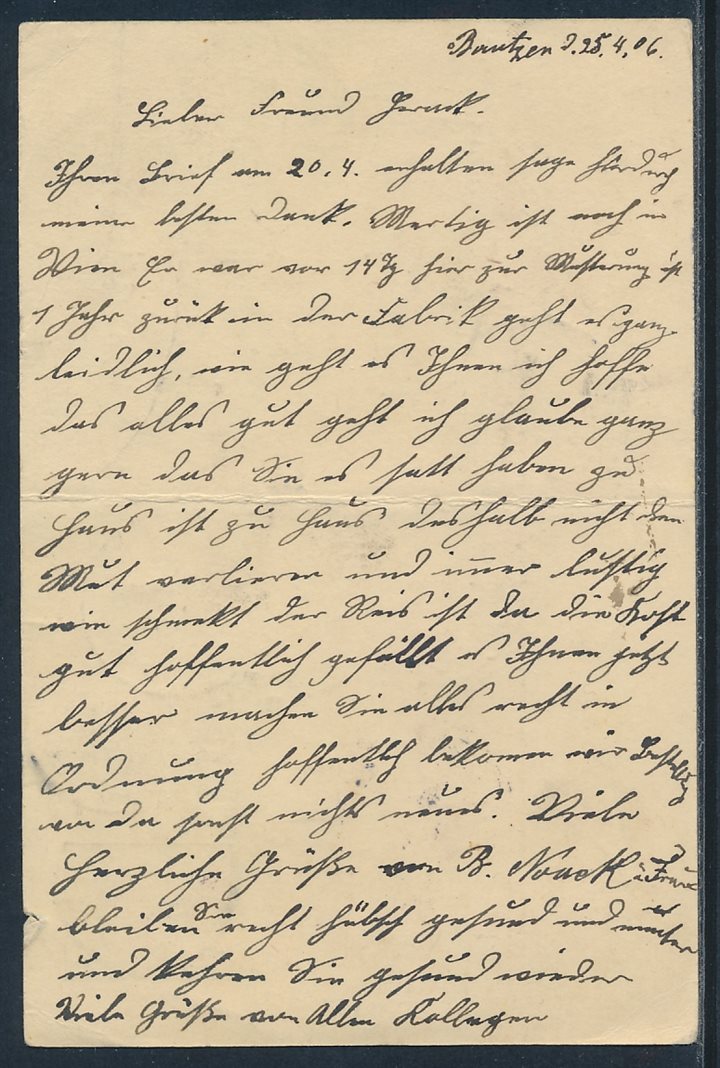 Bautzen d. 25.4.06.
Lieber Freund
Ihren Brief am 20.4. erhalten sage hirdurch
meine besten Dank. Mertig ist noch in
Wien Er war vor 14 Tg hier zur Musterung ist
1 Jahr zurük in der Fabrik geht es ganz
leidlich, wie geht es Ihnen ich hoffe
das alles gut geht ich glaube ganz
gern das Sie es satt haben zu
Haus ist zu Haus deshalb nicht den
Mut verlieren und immer lustig
wie schmekt der Reis ist da die Kost
gut hoffentlich gefällt es Ihnen jetzt
besser machen Sie alles recht in
Ordnung hoffentlich bekomen wir
von da sonst nichts neues. Viele
Herzliche Grüße von B. Noack u Frau
bleiben Sie recht hübsch gesund und munter
und kehren Sie gesund wieder
Viele Grüße von Allen Kollegen